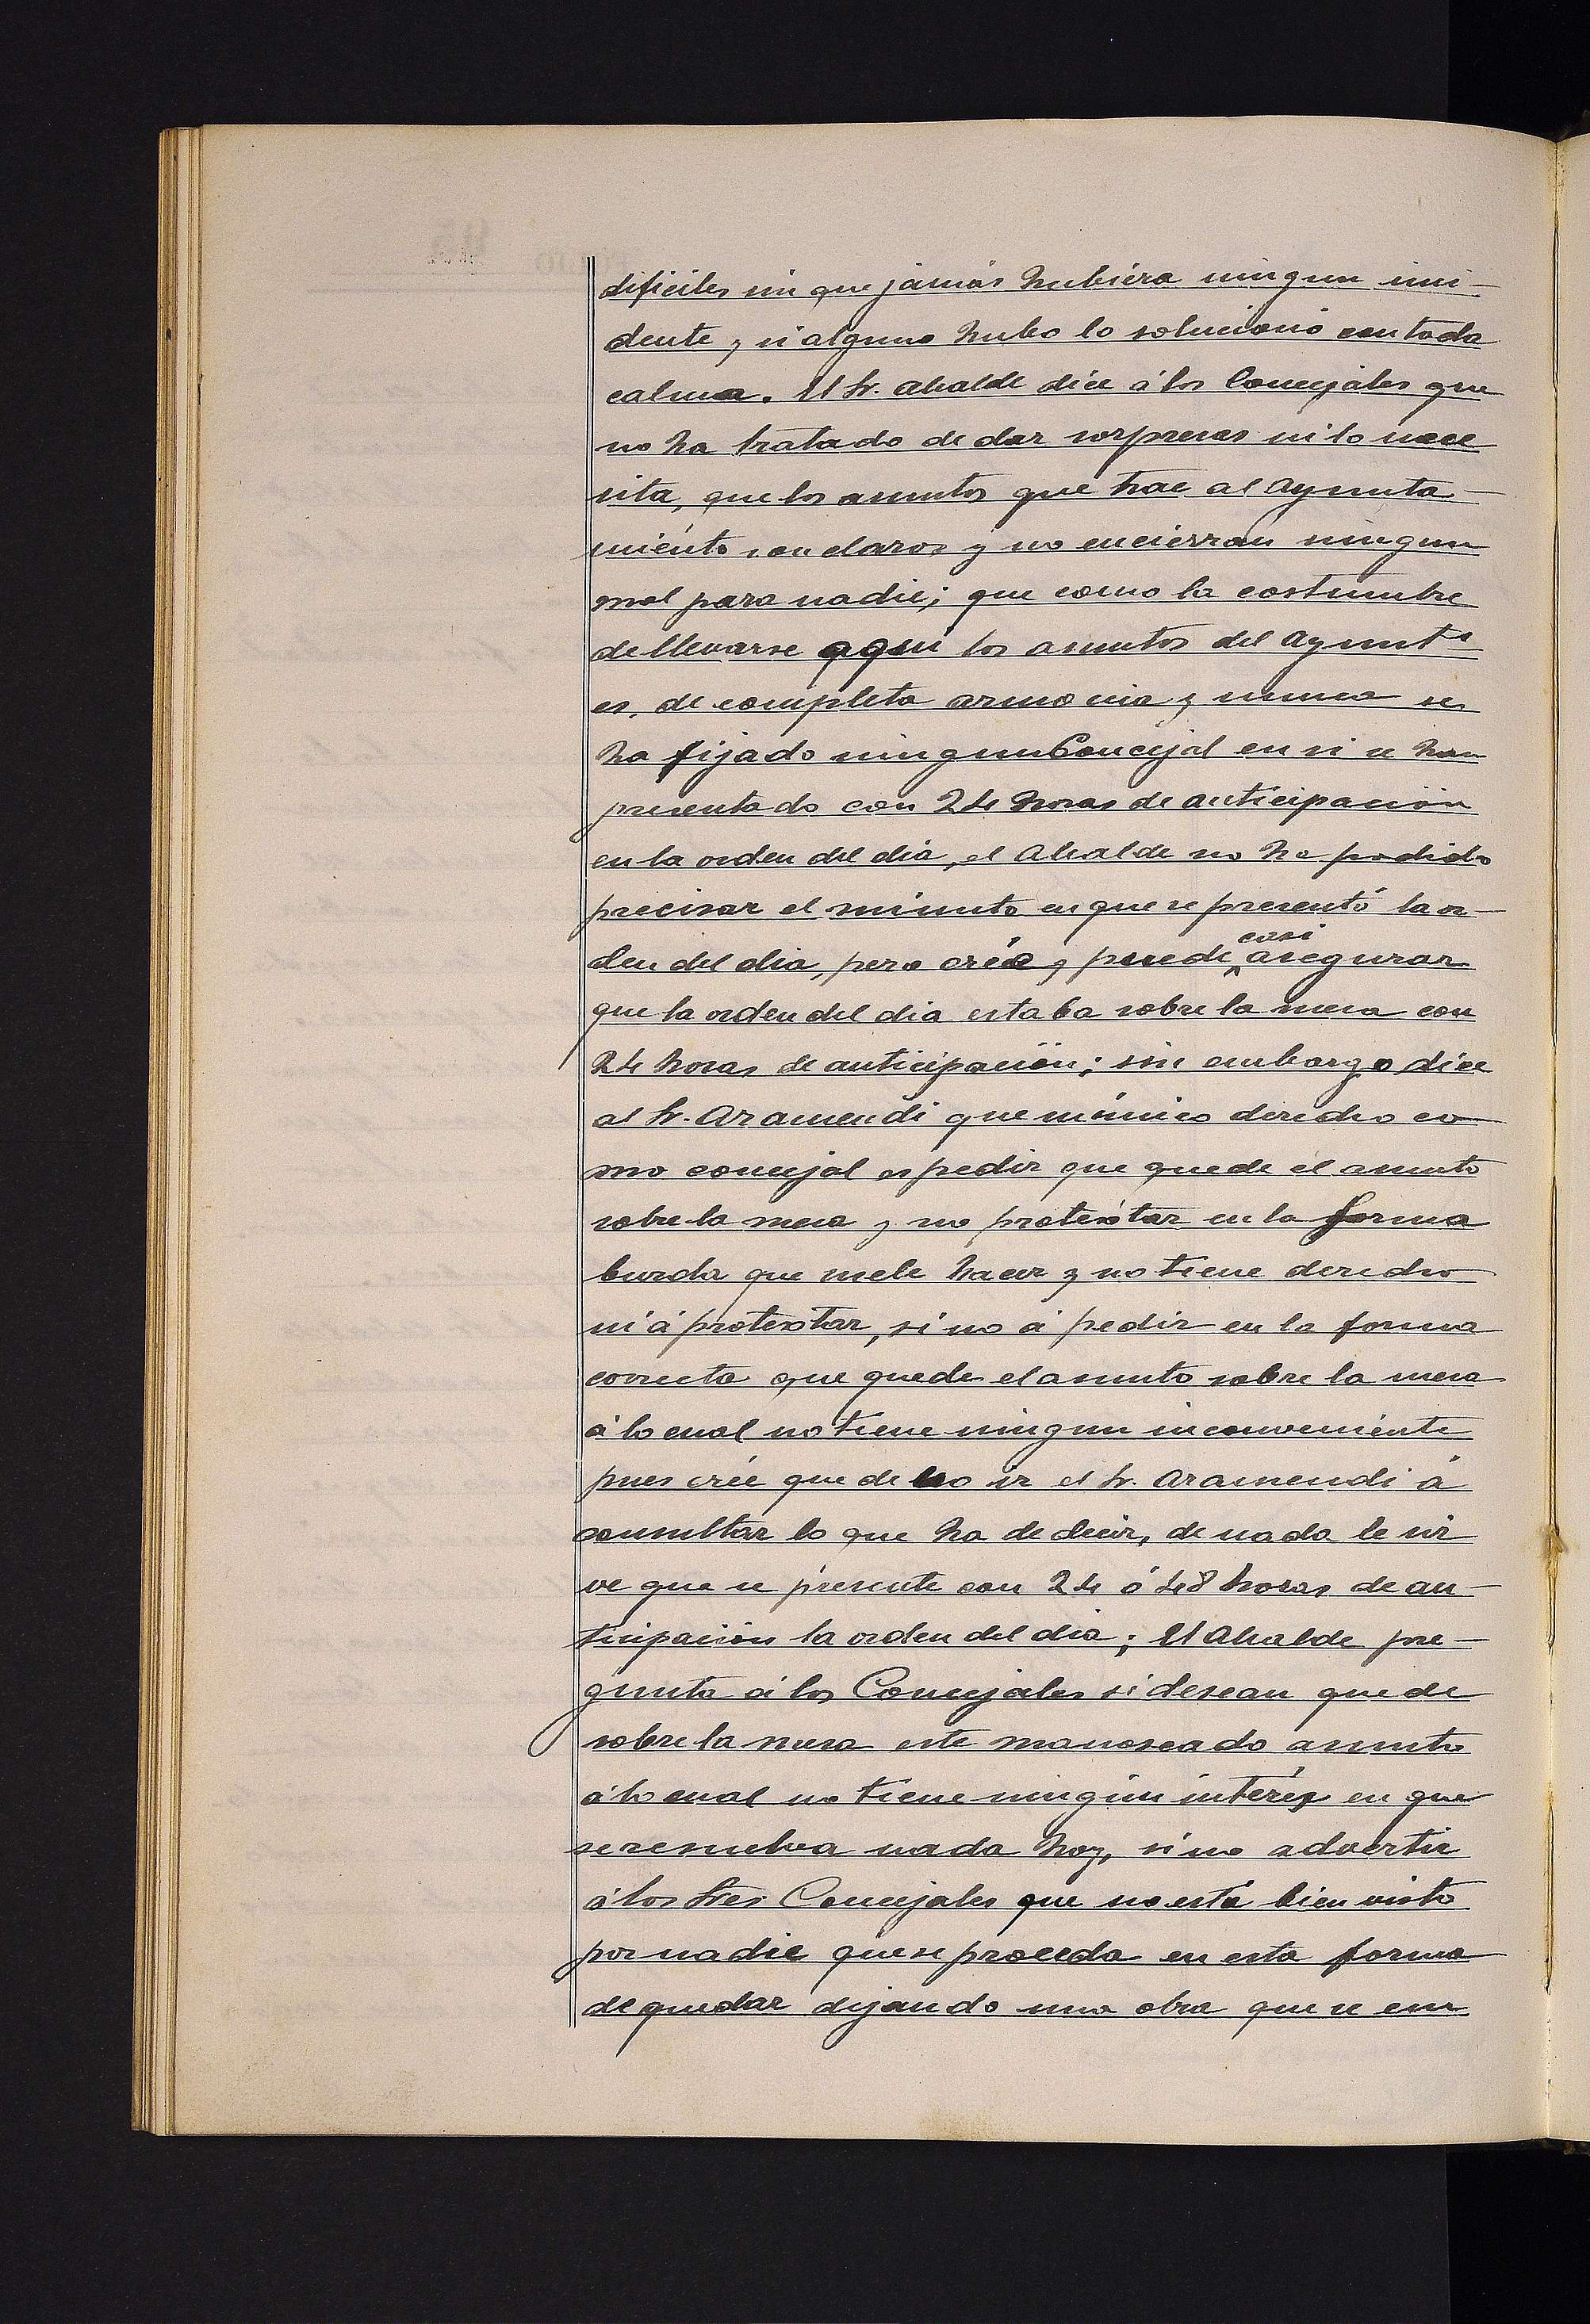 dificiles sin que jamás hubiera ningun inci-
dente y si alguno hubo lo solucionó con toda
calma. El Sr. Alcalde dice á los Concejales que
no ha tratado de dar sorpresas ni lo nece
sita, que los asuntos que trae al Ayunta-
miento son claros y no encierran ningun
mal para nadie; que como la costumbre
de llevarse aqui los asuntos del Ayuntº
es, de completa armonia y nunca se
ha fijado ningun Concejal en si se han
presentado con 24 horas de anticipación
en la orden del dia, el Alcalde no ha podido
precisar el minuto en que se presentó la or-
den del dia, pero crée y puede casi asegurar
que la orden del dia estaba sobre la mesa con
24 horas de anticipación; sin embargo dice
al Sr. Aramendi que su único derecho co
mo concejal es pedir que quede el asunto
sobre la mesa y no protextar en la forma
burda que suele hacer y no tiene derecho
ni á protextar, sino á pedir en la forma
correcta que quede el asunto sobre la mesa
á lo cual no tiene ningun inconveniente
pues crée que de no ir el Sr. Aramendi á
consultar lo que ha de decir, de nada le sir
ve que se presente con 24 ó 48 horas de an-
ticipación la orden del dia; El Alcalde pre-
gunta á los Concejales si desean quede
sobre la mesa este manoseado asunto
á lo cual no tiene ningún interés en que
se resuelva nada hoy, sino advertir
á los Sres Concejales que no está bien visto
por nadie que se proceda en esta forma
de quedar dejando una obra que se em